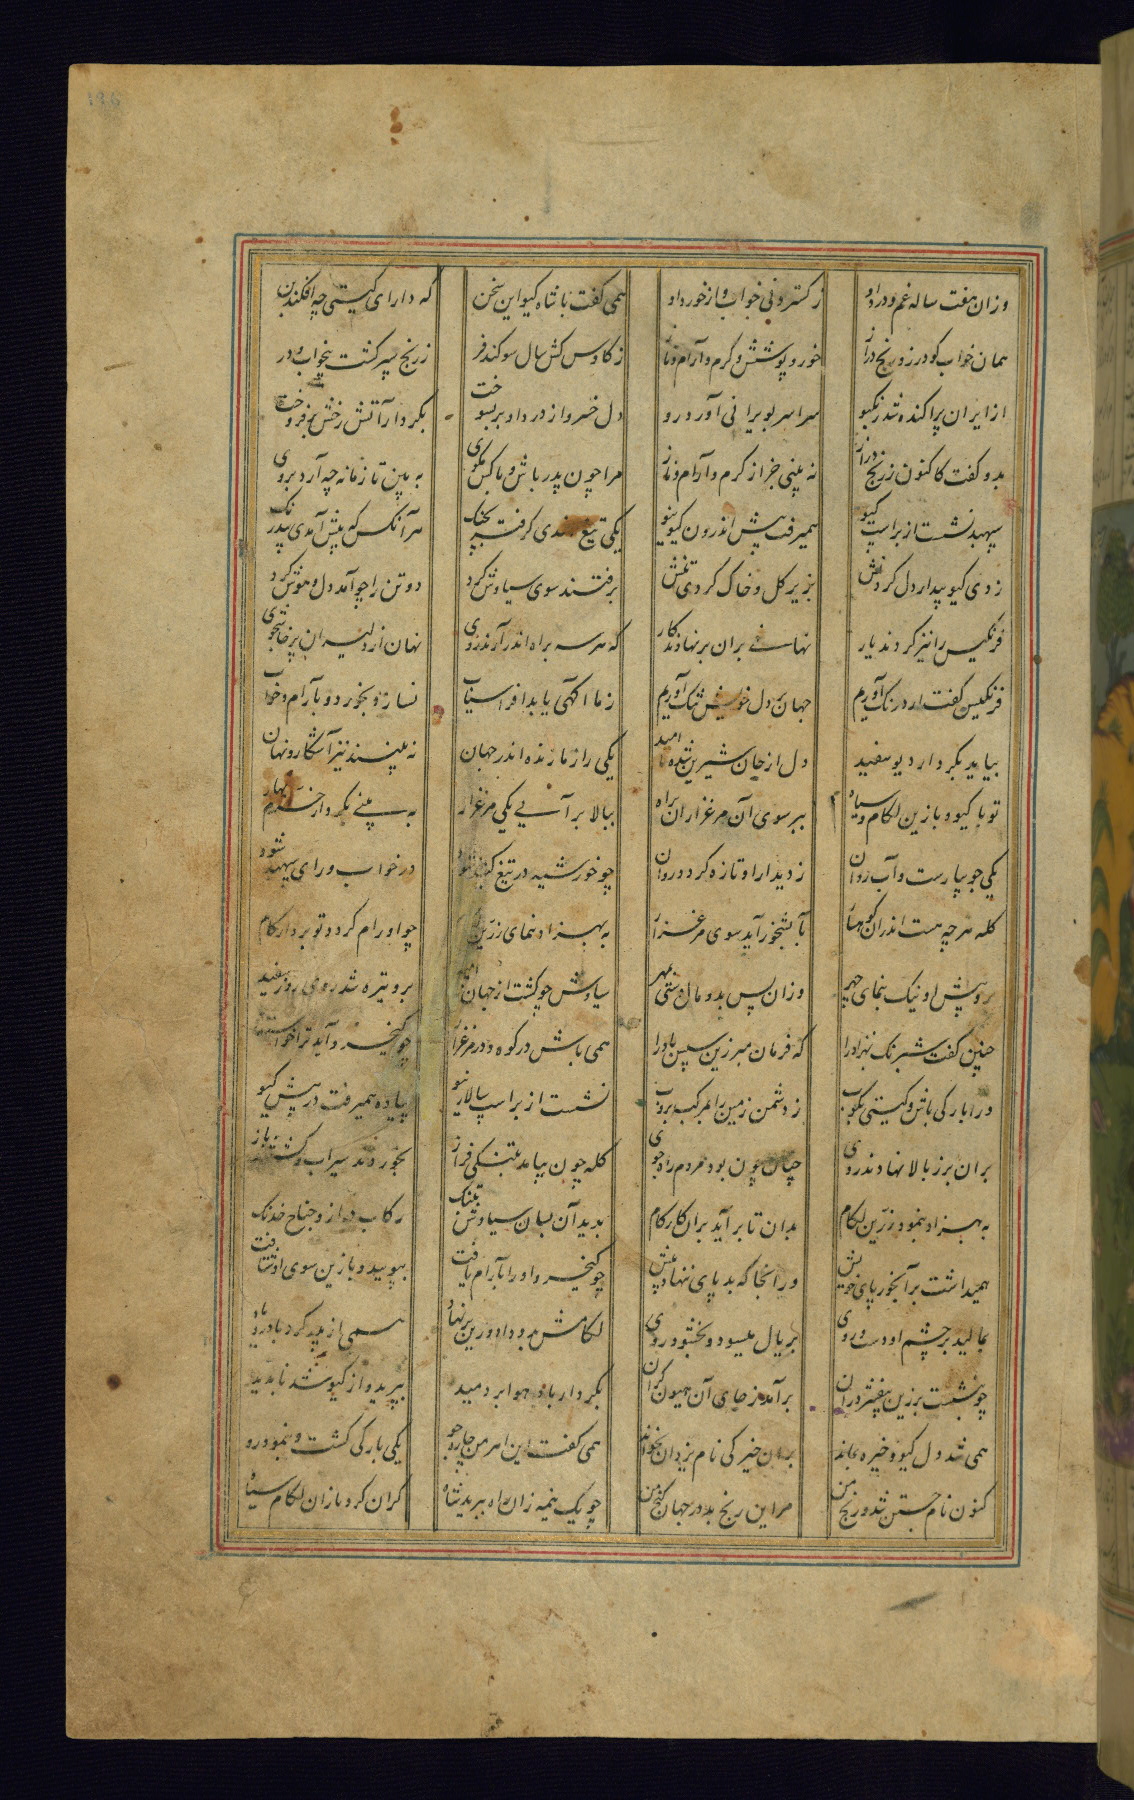 همی گفت با شاه گیو این سخن که دارای گیتی چه افکند بن
وزان هفت ساله غم و درد او ز گستردنی خواب و از خورد او
ز کاوس کش سال بفکند فر ز رنج پسر گشت بیخواب و
همان خواب گودرز و رنج دراز خور و پوشش و گرم و آرام و ناز
از ایران پراکنده شد رنگ و بو سراسر بویرانی آورد رو
دل خسرو از درد او بر بسوخت بکردار آتش رخش بر فروخت
بدو گفت کاکنون ز رنج دراز نه بینی جز از گرم و آرام و ناز
مرا چون پدر باش و با کس مگوی به بین تا زمانه چه آرد بروی
سپهبد نشست از بر اسپ گیو همیرفت پیش اندرون گیو نیو
یکی تیغ هندی گرفته بچنگ هر آنکس که پیش آمدی بیدرنگ
زدی گیو بیدار دل گردنش بزیر گل و خاک کردی تنش
برفتند سوی سیاوش گرد دو تن را چو آمد دل و هوش گرد
فرنگیس را نیز کردند یار نهانی بران بر نهادند کار
که هر سه براه اندر آرند روی نهان از دلیران پرخاشجوی
فرنگیس گفت ار درنگ آوریم جهان بر دل خویش تنگ آوریم
ز ما آگهی یابد افراسیاب نسازد بخورد و بآرام و خواب
بیاید بکردار دیو سفید دل از جان شیرین شده نا امید
یکی را ز ما زنده اندر جهان نه بیند نیز آشکار و نهان
تو با گیو و با زین لگام و سیاه ببر سوی آن مرغزاران براه
ببالا بر آئی یکی مرغزار به بینی بکردار خرم بهار
یکی جویبارست و آب روان ز دیدار او تازه گردد روان
چو خورشید در تیغ گنبد شود در خواب و رای سپهبد شود
گله هر چه هست اندران کوهسار بآبشخور آید سوی مرغزار
به بهزاد بنمای زرین چو او رام گردد تو بردار گام
رو پیش او نیک بنمای چهر وزان پس بدو مال دستی بمهر
سیاوش چو گشت از جهان ناامید برو تیره شد روی روز سفید
چنین گفت شبرنگ بهزاد را که فرمان مبر زین سپس باد را
همی باش در کوه و در مرغزار چو کیخسرو آید ترا خواستار
ورا بارکی باش و گیتی بکوب ز دشمن زمین را بمرکب بروب
نشست از بر اسپ سالار نیو پیاده همیرفت در پیش گیو
بران برز بالا نهادند روی چنان چون بود مردم راه جوی
گله چون بیامد بتنگی فراز بخوردند سیراب و گشتند باز
به بهزاد بنمود زرین لگام بدان تا بر آید بران کار کام
بدید آن سیاوش پلنگ رکاب دراز و جناح خدنگ
همیداشت بر آبخور پای خویش ورا آنجا که بد پای ننهاد پیش
چو کیخسرو او را بآرام یافت بپویید و با زین سوی او شتافت
بمالید بر چشم او دست و روی بر یال میسود و بشخود روی
لگامش بدو داد و زین بر نهاد همی از پدر کرد با درد یاد
چو بنشست بر زین بیفشرد ران برآمد ز جای آن هیون گران
بکردار باد هوا بر دمید بپرید و از گیو شد ناپدید
همی شد دل گیو و خیره بماند بران خیرگی نام یزدان بخواند
همی گفت این اهرمن چاره جو یکی بارگی گشت و بنمود رو
کنون نام جستن شد و رنج من مرا این رنج بد در جهان گنج من
چو یک نیمه زان راه ببرید شاه گران کرد باز آن لگام سیاه